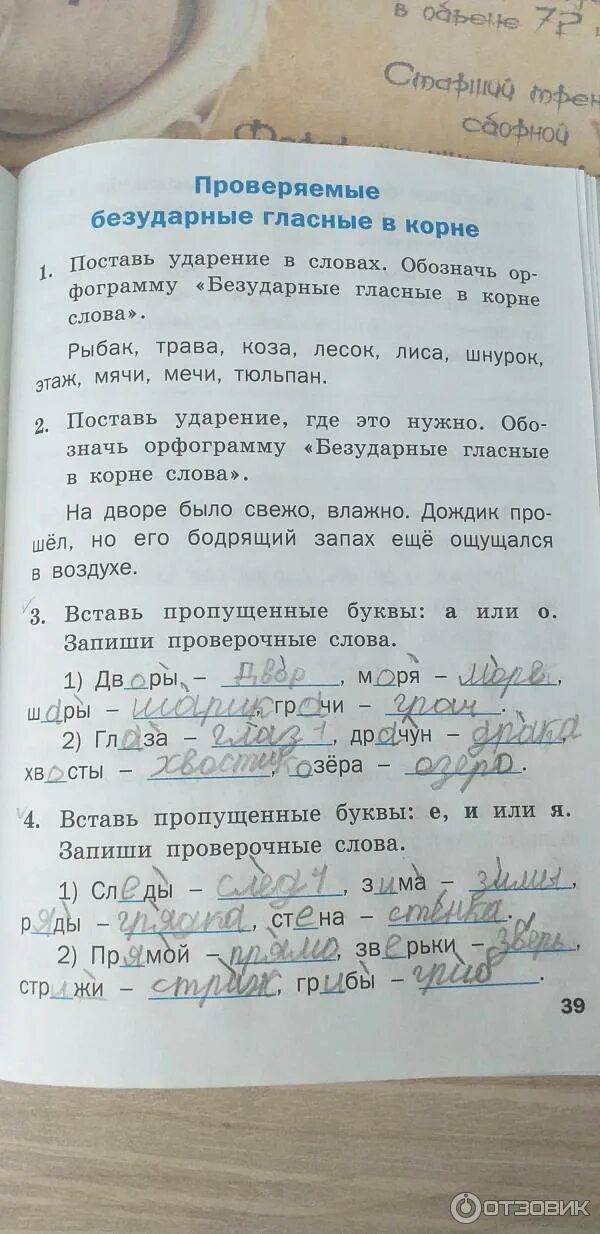 в обрене 7?
Старший трен
сборной
Проверяемые
безударные гласные в корне
1. Поставь ударение в словах. Обозначь ор-
фограмму «Безударные гласные в корне
слова».
Рыбак, трава, коза, лесок, лиса, шнурок,
этаж, мячи, мечи, тюльпан.
2. Поставь ударение, где это нужно. Обо-
значь орфограмму «Безударные гласные
в корне слова».
На дворе было свежо, влажно. Дождик про-
шёл, но его бодрящий запах ещё ощущался
в воздухе.
3. Вставь пропущенные буквы: а или о.
Запиши проверочные слова.
1) Дворы – двор, моря – море,
шары – шарик, грачи – грач.
2) Глаза – глаз, драчун – драка,
хвосты – хвостик, озёра – озеро.
4. Вставь пропущенные буквы: е, и или я.
Запиши проверочные слова.
1) Следы – след, зима – зимы,
ряды – грядка, стена – стенка.
2) Прямой – прямо, зверьки – зверь,
стрижи – стриж, грибы – гриб.
39
ОТЗОВИК